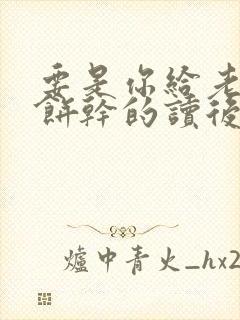 要是你給老
餅幹的讀後
爐中青火_hx2